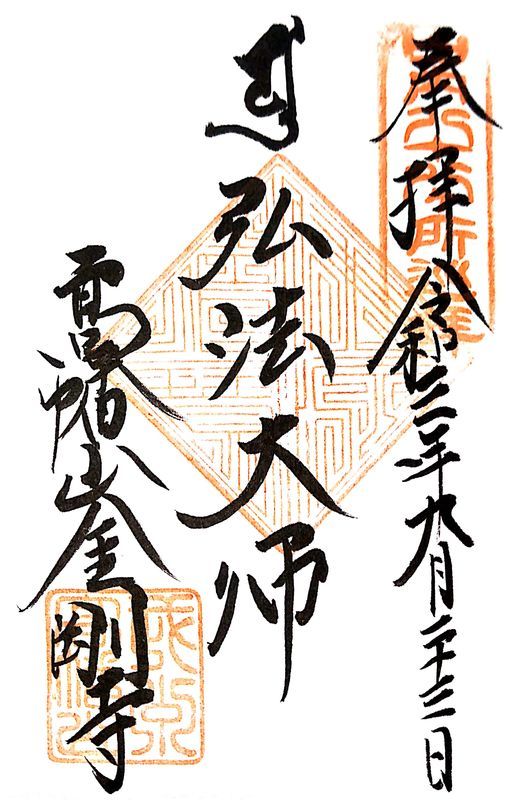 奉拝 令和二年九月二十三日
弘法大师
高幡山金剛寺